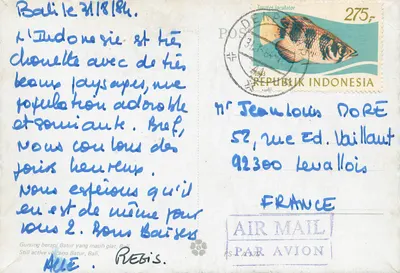 Bali le 31/8/84.
L'Indonésie est très
chouette avec de très
beaux paysages, une
population adorable
et souriante. Bref,
nous coulons des
jours heureux.
Nous espérons qu'il
en est de même pour
vous 2. Bons Baisers
REGIS.
275,-
REPUBLIK INDONESIA
Mr Jean Louis DORE
52, rue Ed. Vaillant
92300 Levallois
FRANCE
AIR MAIL
PAR AVION